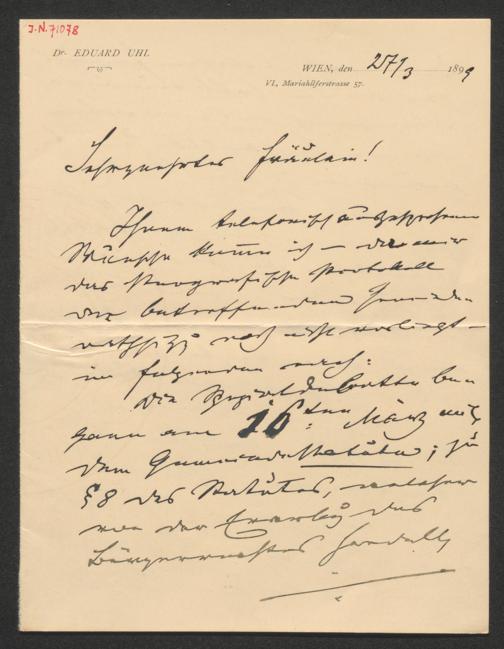 I.N. 71078
Dr. EDUARD UHL
WIEN, den 27/3 1899
VI., Mariahilferstrasse 57.
Sehrgeehrtes Fräulein!
Ihrem telefonisch ausgesprochenen
Wunsche komme ich – da mir
das stenografische Protokoll
der betreffenden Gemeinde-
rathssitzg noch nicht vorliegt –
im folgenden nach:
Die Spezialdebatte be-
gann am 16ten März mit
dem Gemeindestatute; zu
§ 8 des Statutes, welcher
von der Erwerbg des
Bürgerrechtes handelt,